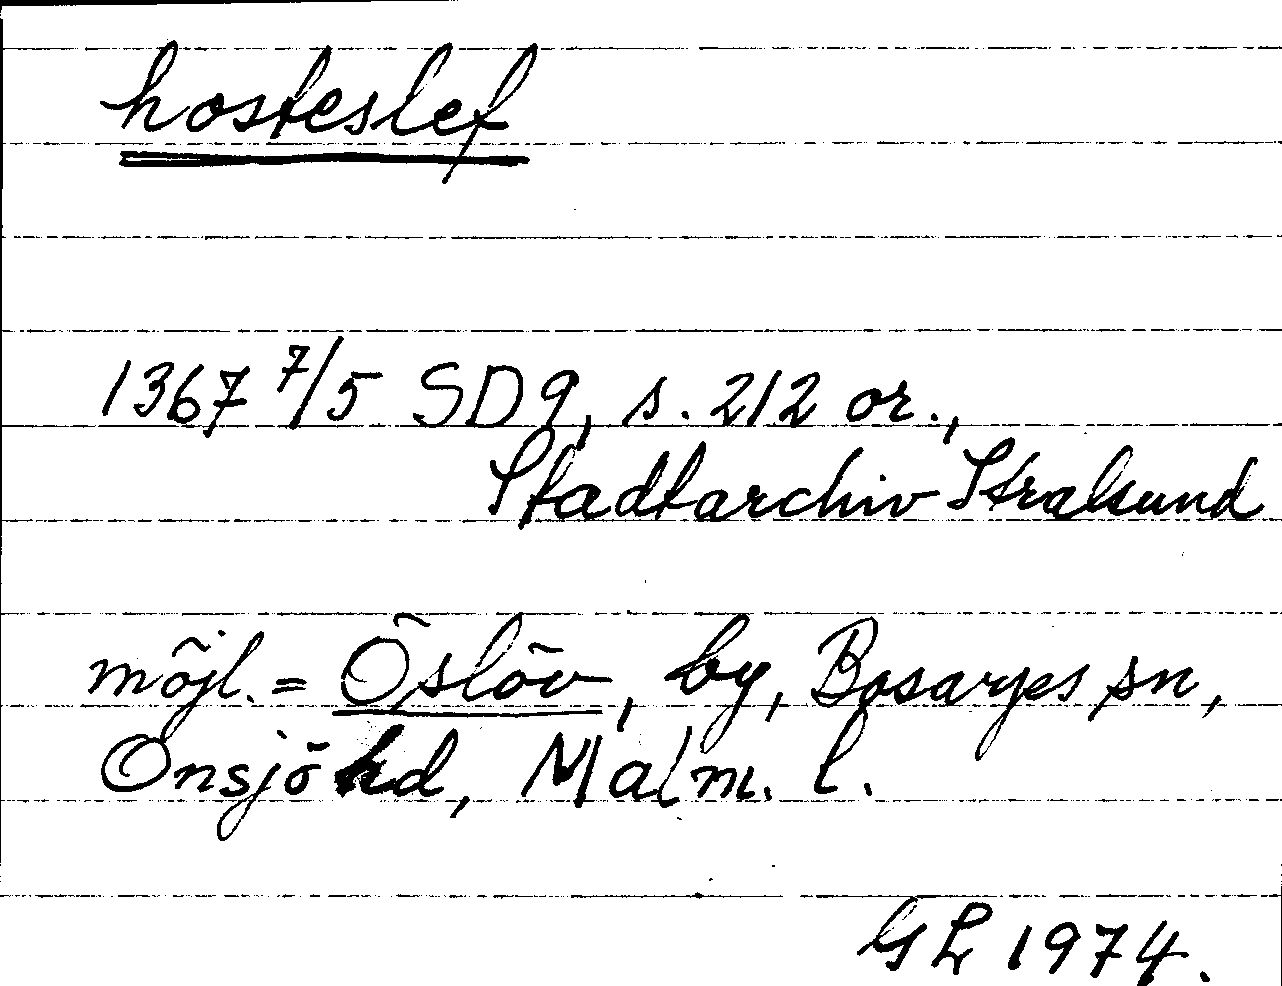 hosteslef
1367 7/5 SD9, s. 212 or.,
Stadtarchiv Stralsund
möjl. = Öslöv, by, Bosarjes sn,
Onsjö hd, Malm. l.
GL 1974.